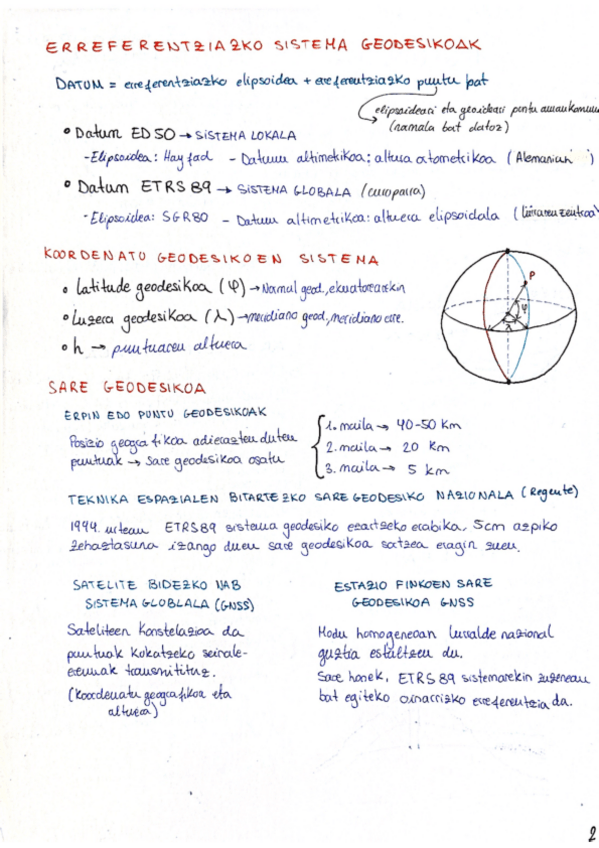 ERREFERENTZIAZKO SISTEMA GEODESIKOAK
DATUM = erreferentziazko elipsoidea + erreferentziazko puntu bat
elipsoideari eta geoideari puntu amankomuna
(namala bat dator)
• Datum ED50 → SISTEMA LOKALA
-Elipsoidea: Hayfad - Datum altimetrikoa: altura ortometrikoa (Alemanian)
• Datum ETRS89 → SISTEMA GLOBALA (europarra)
-Elipsoidea: SGR80 - Datum altimetrikoa: altuera elipsoidala (lurraren zentroa)
KOORDENATU GEODESIKOEN SISTEMA
• Latitude geodesikoa (φ) → Normal geod., ekuatorearekin
• Luzera geodesikoa (λ) → meridiano geod., meridiano erre.
• h → puntuaren altuera
P
φ
λ
SARE GEODESIKOA
ERPIN EDO PUNTU GEODESIKOAK
Posizio geografikoa adierazten duten
puntuak → Sare geodesikoa osatu
1. maila → 40-50 Km
2. maila → 20 Km
3. maila → 5 km
TEKNIKA ESPAZIALEN BITARTEZKO SARE GEODESIKO NAZIONALA (Regente)
1994. urtean ETRS89 sistema geodesiko ezartzeko erabika, 5cm azpiko
zehaztasuna izango duen sare geodesikoa satzea eragin zuen.
SATELITE BIDEZKO NAB
SISTEMA GLOBLALA (GNSS)
Sateliteen konstelazioa da
puntuak kokatzeko seinale-
ezeunak transmitituz.
(koordenatu geografikoa eta
altuera)
ESTAZIO FINKOEN SARE
GEODESIKOA GNSS
Modu homogeneoan lurralde nazional
guztia estaltzen du.
Sare honek, ETRS89 sistemarekin zuzenean
bat egiteko oinarrizko erreferentzia da.
2